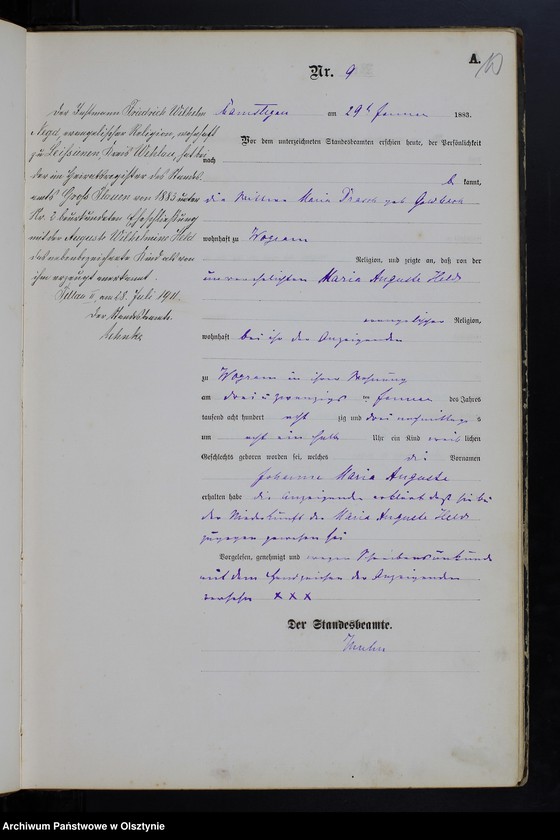 A.
Nr. 9
Kamstigall am 29t Januar 1883.
Vor dem unterzeichneten Standesbeamten erschien heute, der Persönlichkeit
nach
kannt,
die Wittwe Maria Drasch geb Goldbach
wohnhaft zu Wogram
Religion, und zeigte an, daß von der
unverehelichten Maria Auguste Held
evangelischer Religion,
wohnhaft bei ihr der Anzeigenden
zu Wogram in ihrer Wohnung
am drei u zwanzigs ten Januar des Jahres
tausend acht hundert acht zig und drei nachmittags
um acht ein halb Uhr ein Kind weib lichen
Geschlechts geboren worden sei, welches die Vornamen
Johanne Maria Auguste
erhalten habe die Anzeigende erklärt daß sie bei
der Niederkunft der Maria Auguste Held
zugegen gewesen sei
Vorgelesen, genehmigt und wegen Schreibensunkunde
mit dem Handzeichen der Anzeigenden
versehen x x x
Der Standesbeamte.
Der Friedrich Wilhelm
evangelischer Religion, wohnhaft
zu Leissienen Kreis Wehlau, hat bei
der im Heiratsregister des Standes-
amts Gross von 1885 unter
Nr. 2 beurkundeten Eheschließung
mit der Auguste Wilhelmine Held
das nebenbezeichnete Kind als von
ihm erzeugt anerkannt.
Pillau II, am 28. Juli 1911.
Der Standesbeamte.
Archiwum Państwowe w Olsztynie